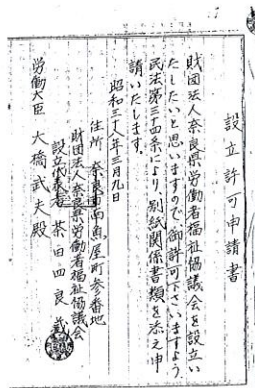 設立許可申請書
財団法人奈良県労働者福祉協議会を設立い
たしたいと思いますので御許可下さいますよう
民法第三十四条により、別紙関係書類を添え申
請いたします。
昭和三十八年三月九日
住所 奈良市南魚屋町参番地
財団法人奈良県労働者福祉協議会
設立代表者 柴田四良
労働大臣 大橋武夫殿